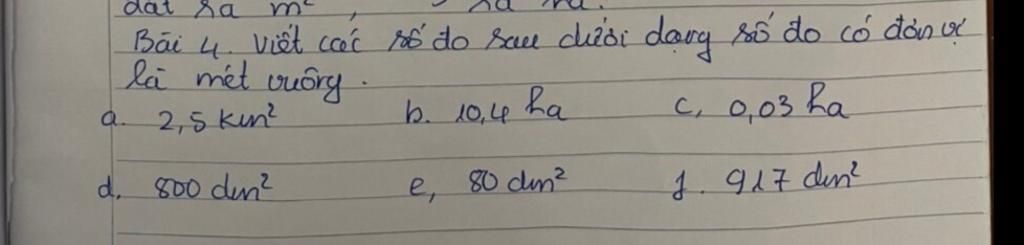 đất ra m²,
Bài 4. Viết các số đo sau dưới dạng số đo có đơn vị
là mét vuông.
a. 2,5 km² b. 10,4 ha c, 0,03 ha
d, 800 dm² e, 80 dm² f. 917 dm²